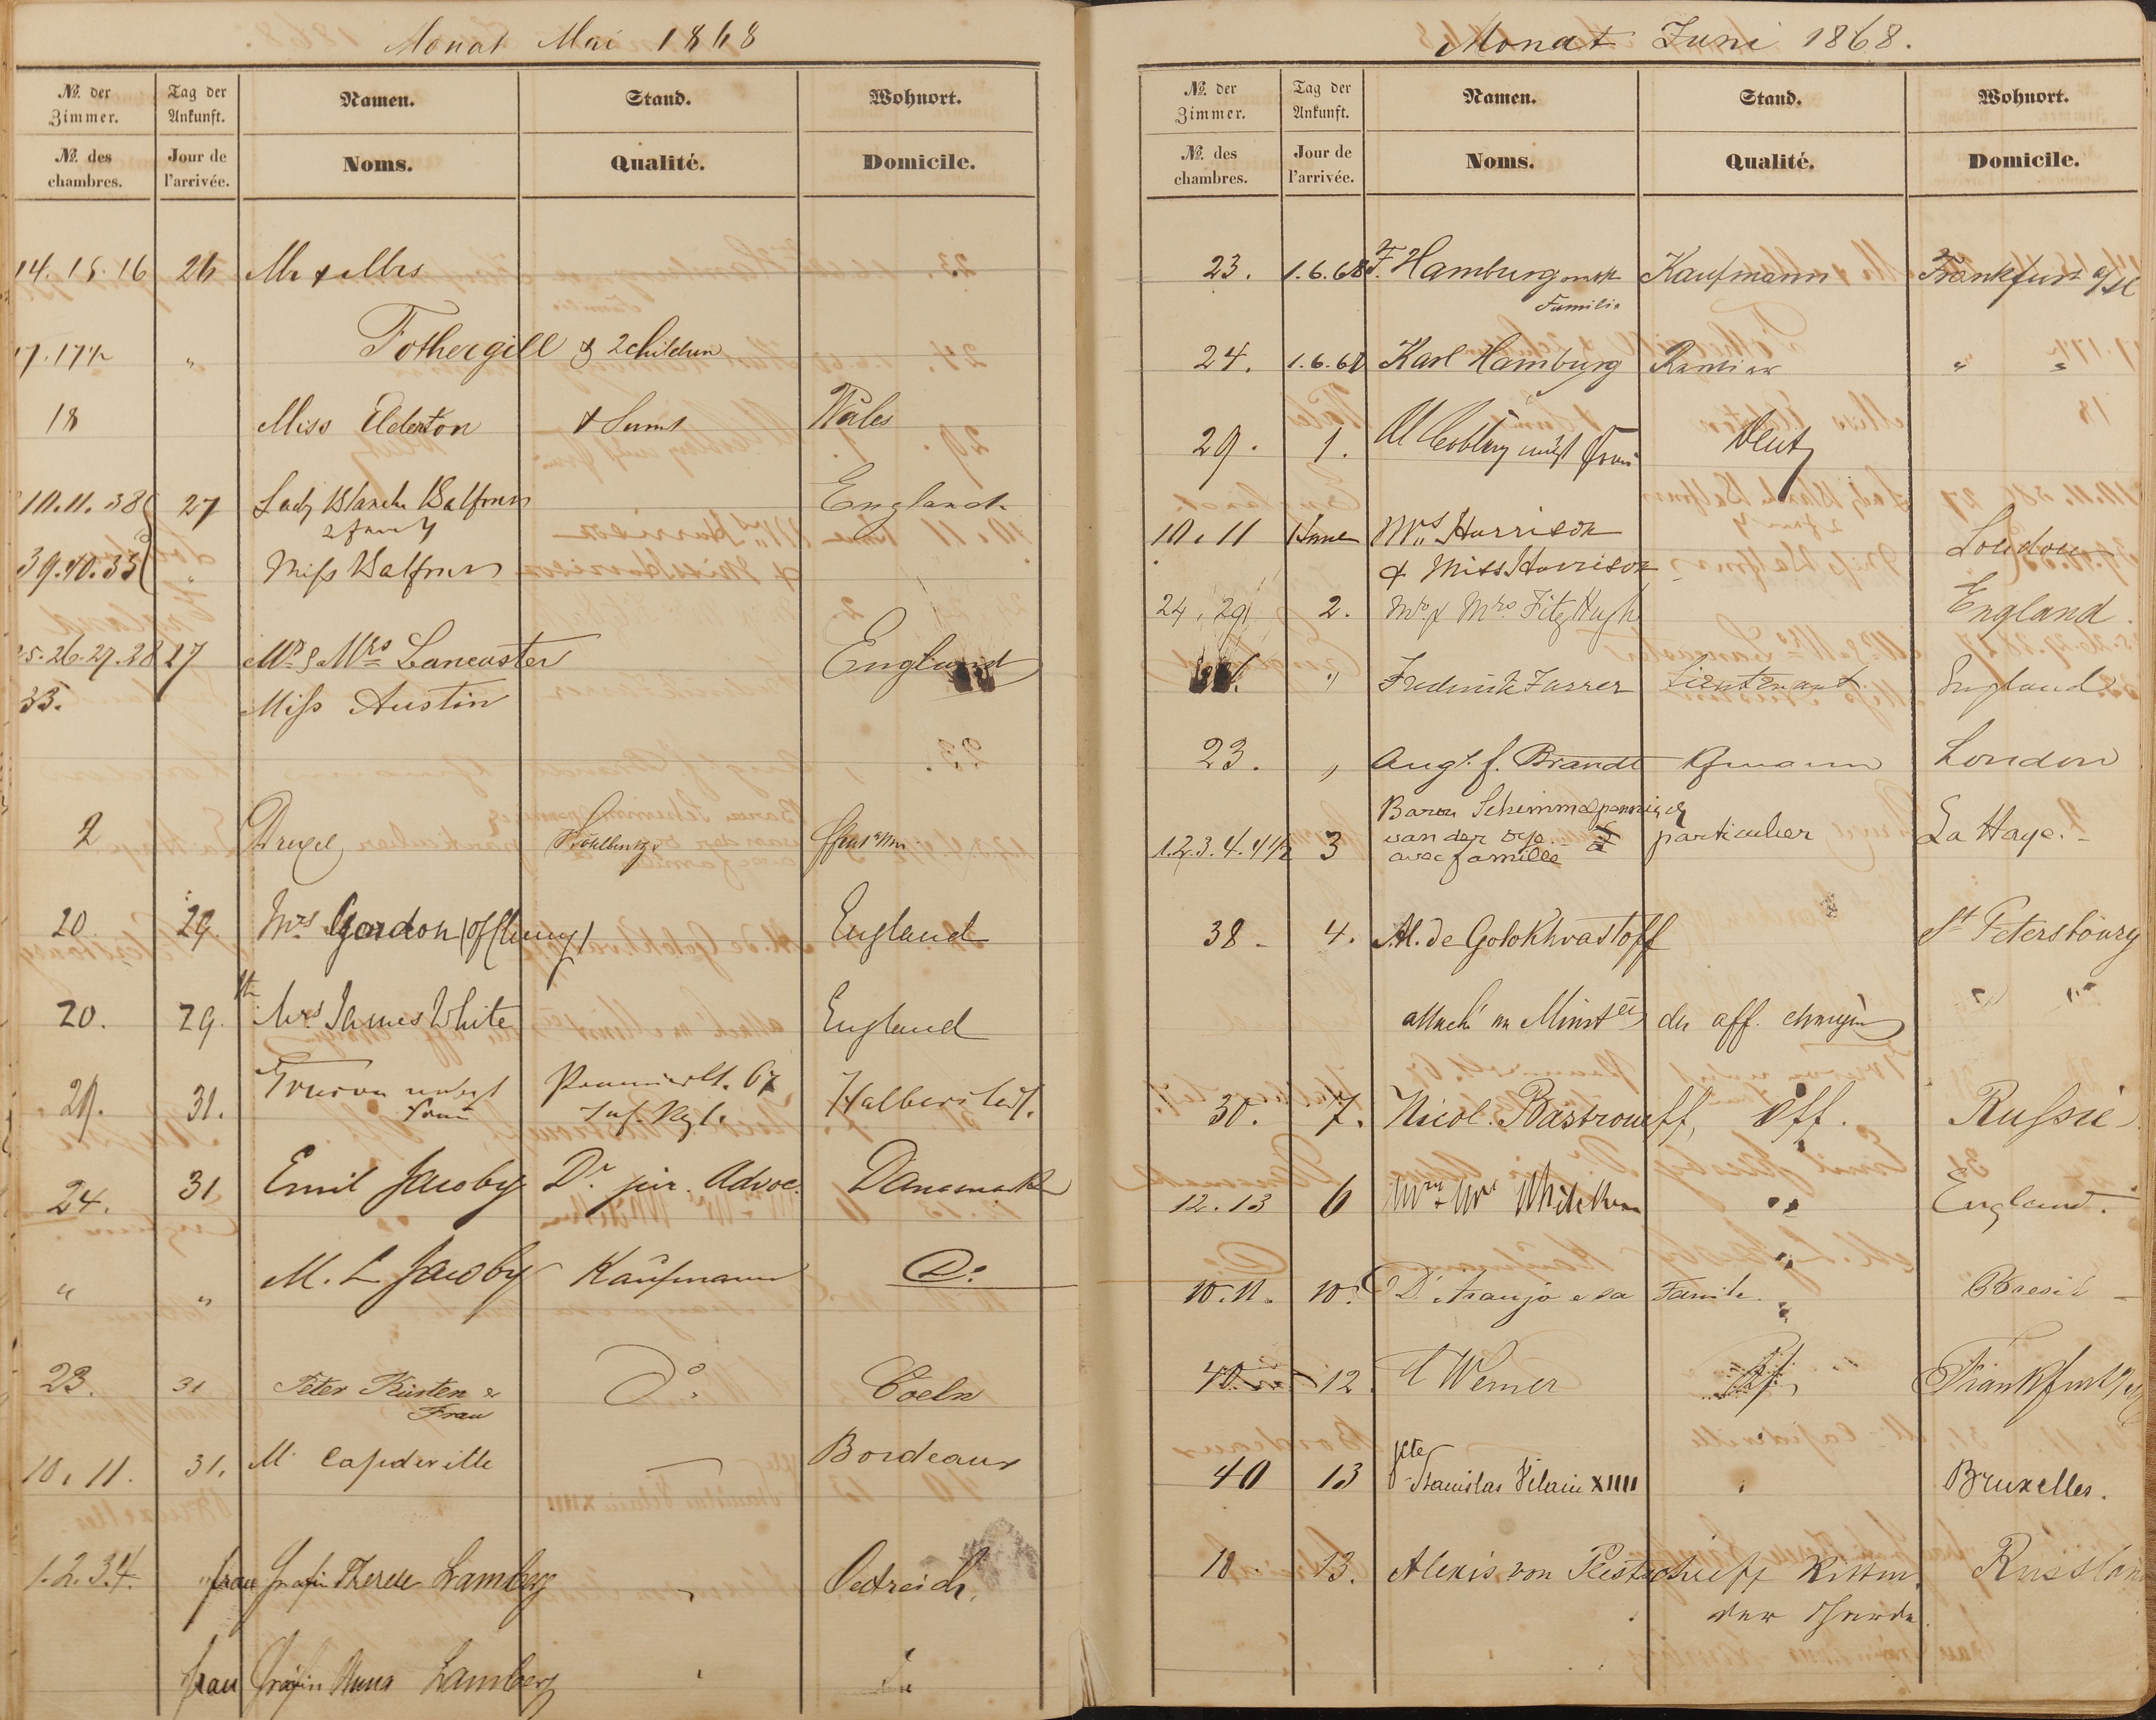 Monat Mai 1868
№. der Zimmer. Tag der Ankunft. Namen. Stand. Wohnort.
№. des chambres. Jour de l'arrivée. Noms. Qualité. Domicile.
14. 15. 16 26 Mr & Mrs
17. 17½ " Fothergill & 2 children
18 Miss Elderton & Servt Wales
10. 11. 38 27 Lady Blanche Balfour England
2 fam
39. 40. 35 " Miss Balfour
25. 26. 27. 28 27 Mr. & Mrs Lancaster England
33. Miss Austin
2 Drexel
20 29. Mrs Gordon England
20. 29. Mrs James White England
29. 31. Premierlt. 67 Halberstadt.
Frau Inf. Rgt.
24. 31 Emil Jacoby Dr. jur. Advoc. Danemark
" " M. L Jacoby Kaufmann Do.
23. 31 Peter Kürsten & Do. Coeln
Frau
10. 11. 31. M. Capdeville Bordeaux
1. 2. 3. 4. " frau Gräfin Therese Lamberg Oestreich.
frau Gräfin Anna Lamberg
Monat Juni 1868.
№. der Zimmer. Tag der Ankunft. Namen. Stand. Wohnort.
№. des chambres. Jour de l'arrivée. Noms. Qualité. Domicile.
23. 1.6.68 F. Hamburg mit Kaufmann Frankfurt a/M
Familie
24. 1.6.68 Karl Hamburg Rentier " "
29. 1. nebst Frau Deutz
10. 11 1 June Mrs. Harrison London
& Miss Harrison
24, 29 2. Mr. & Mrs. FitzHugh England
" Frederick Farrer Lieutenant. England
23. " Augt. f. Brandt Kfmann London
Baron Schimmelpenninck
1.2.3.4.4½ 3 van der Oye particulier La Haye. -
avec famille
38 - 4. Al. de Golokhvastoff St Petersbourg
attaché au Ministère des aff. etrangères " "
30. 7. Nicol. Bastroueff, Off. Russie
12. 13 6 England.
10. 11. 10. D'Araujo e sa Famile. Bresil -
40 12. Werner Frankfurt
40 13 Vcte Stanislas Vilain XIIII Bruxelles.
10. 13. Alexis von Rittm. Russland
der Garde